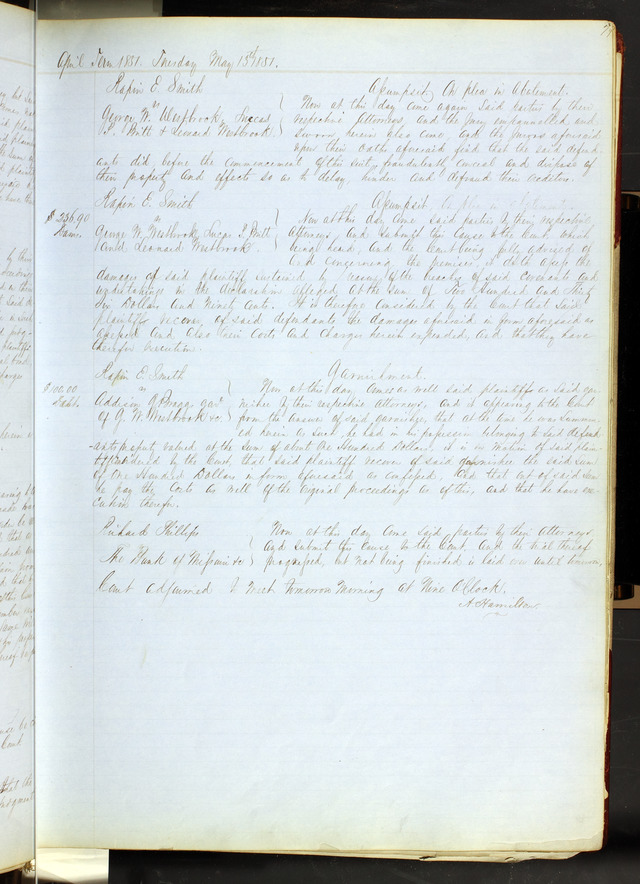 April Term 1851. Tuesday May 13th 1851.
Rapin E. Smith
Assumpsit On plea in Abatement.
vs
George W. Westbrook, Lucas
P. Britt & Leonard Westbrook
Now at this day come again said parties by their
respective Attorneys and the Jury empannelled and
sworn herein also come, and the Jurors aforesaid
upon their oaths aforesaid find that the said defend
ants did, before the commencement of this suit, fraudulently conceal and dispose of
their property and effects so as to delay hinder and defraud their creditors.
Rapin E. Smith
Assumpsit
$256.90
Dam.
vs
George W. Westbrook, Lucas P. Britt
and Leonard Westbrook.
Now at this day come said parties by their respective
Attorneys, and submit this cause to the Court which
being heard, and the Court being fully advised of
and concerning the premises, doth assess the
damages of said plaintiff sustained by reason of the breach of said covenant and
undertakings in the declaration alleged at the sum of Two Hundred and Fifty
Six Dollars and Ninety Cents. It is therefore considered by the Court that said
plaintiff recover of said defendants, the damages aforesaid in form aforesaid as
assessed and also their Costs and Charges herein expended, and that they have
therefor execution.
Rapin E. Smith
Garnishment.
$100.00
Debt.
vs
Addison G. Bragg gar.
of G. W. Westbrook &c.
Now at this day comes as well said plaintiff as said gar
nishee by their respective attorneys, and it appearing to the Court
from the answer of said garnishee, that at the time he was summon
ed herein as such, he had in his possession belonging to said defend
ants property valued at the sum of about One Hundred Dollars, it is on motion of said plain
tiff considered by the Court, that said plaintiff recover of said garnishee the said sum
of One Hundred Dollars in form aforesaid as confessed, and that out of said sum
he pay the Costs as well of the original proceedings as of this, and that he have exe
cution therefor.
Richard Phillips
vs
The Bank of Missouri &c
Now at this day come said parties by their Attorneys
and submit this cause to the Court, and the trial thereof
progressed, but not being finished is laid over until tomorrow.
Court adjourned to meet tomorrow morning at Nine O'Clock.
A. Hamilton